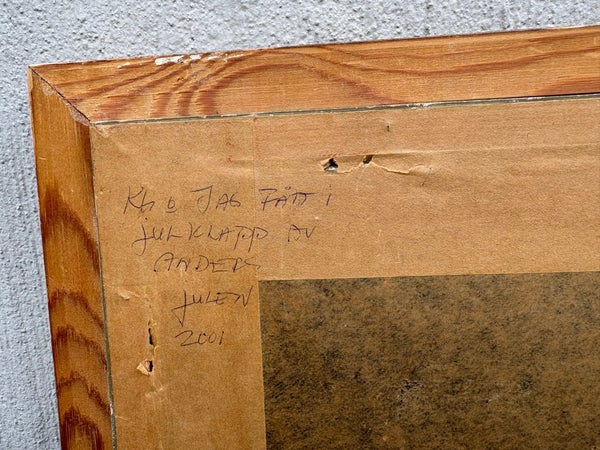 O JAG FÅTT I
JULKLAPP AV
ANDERS
JULEN
2001